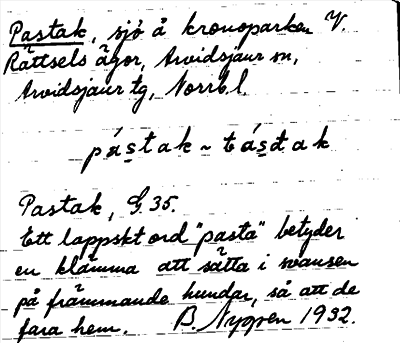 Pastak, sjö å kronoparken V.
Rättsels ägor, Arvidsjaur sn,
Arvidsjaur tg, Norrb. l.
pás̲tak ~ tás̲tak
Pastak, G. 35.
Ett lappskt ord "pasta" betyder
en klämma att sätta i svansen
på främmande hundar, så att de
fara hem. B. Nygren 1932.